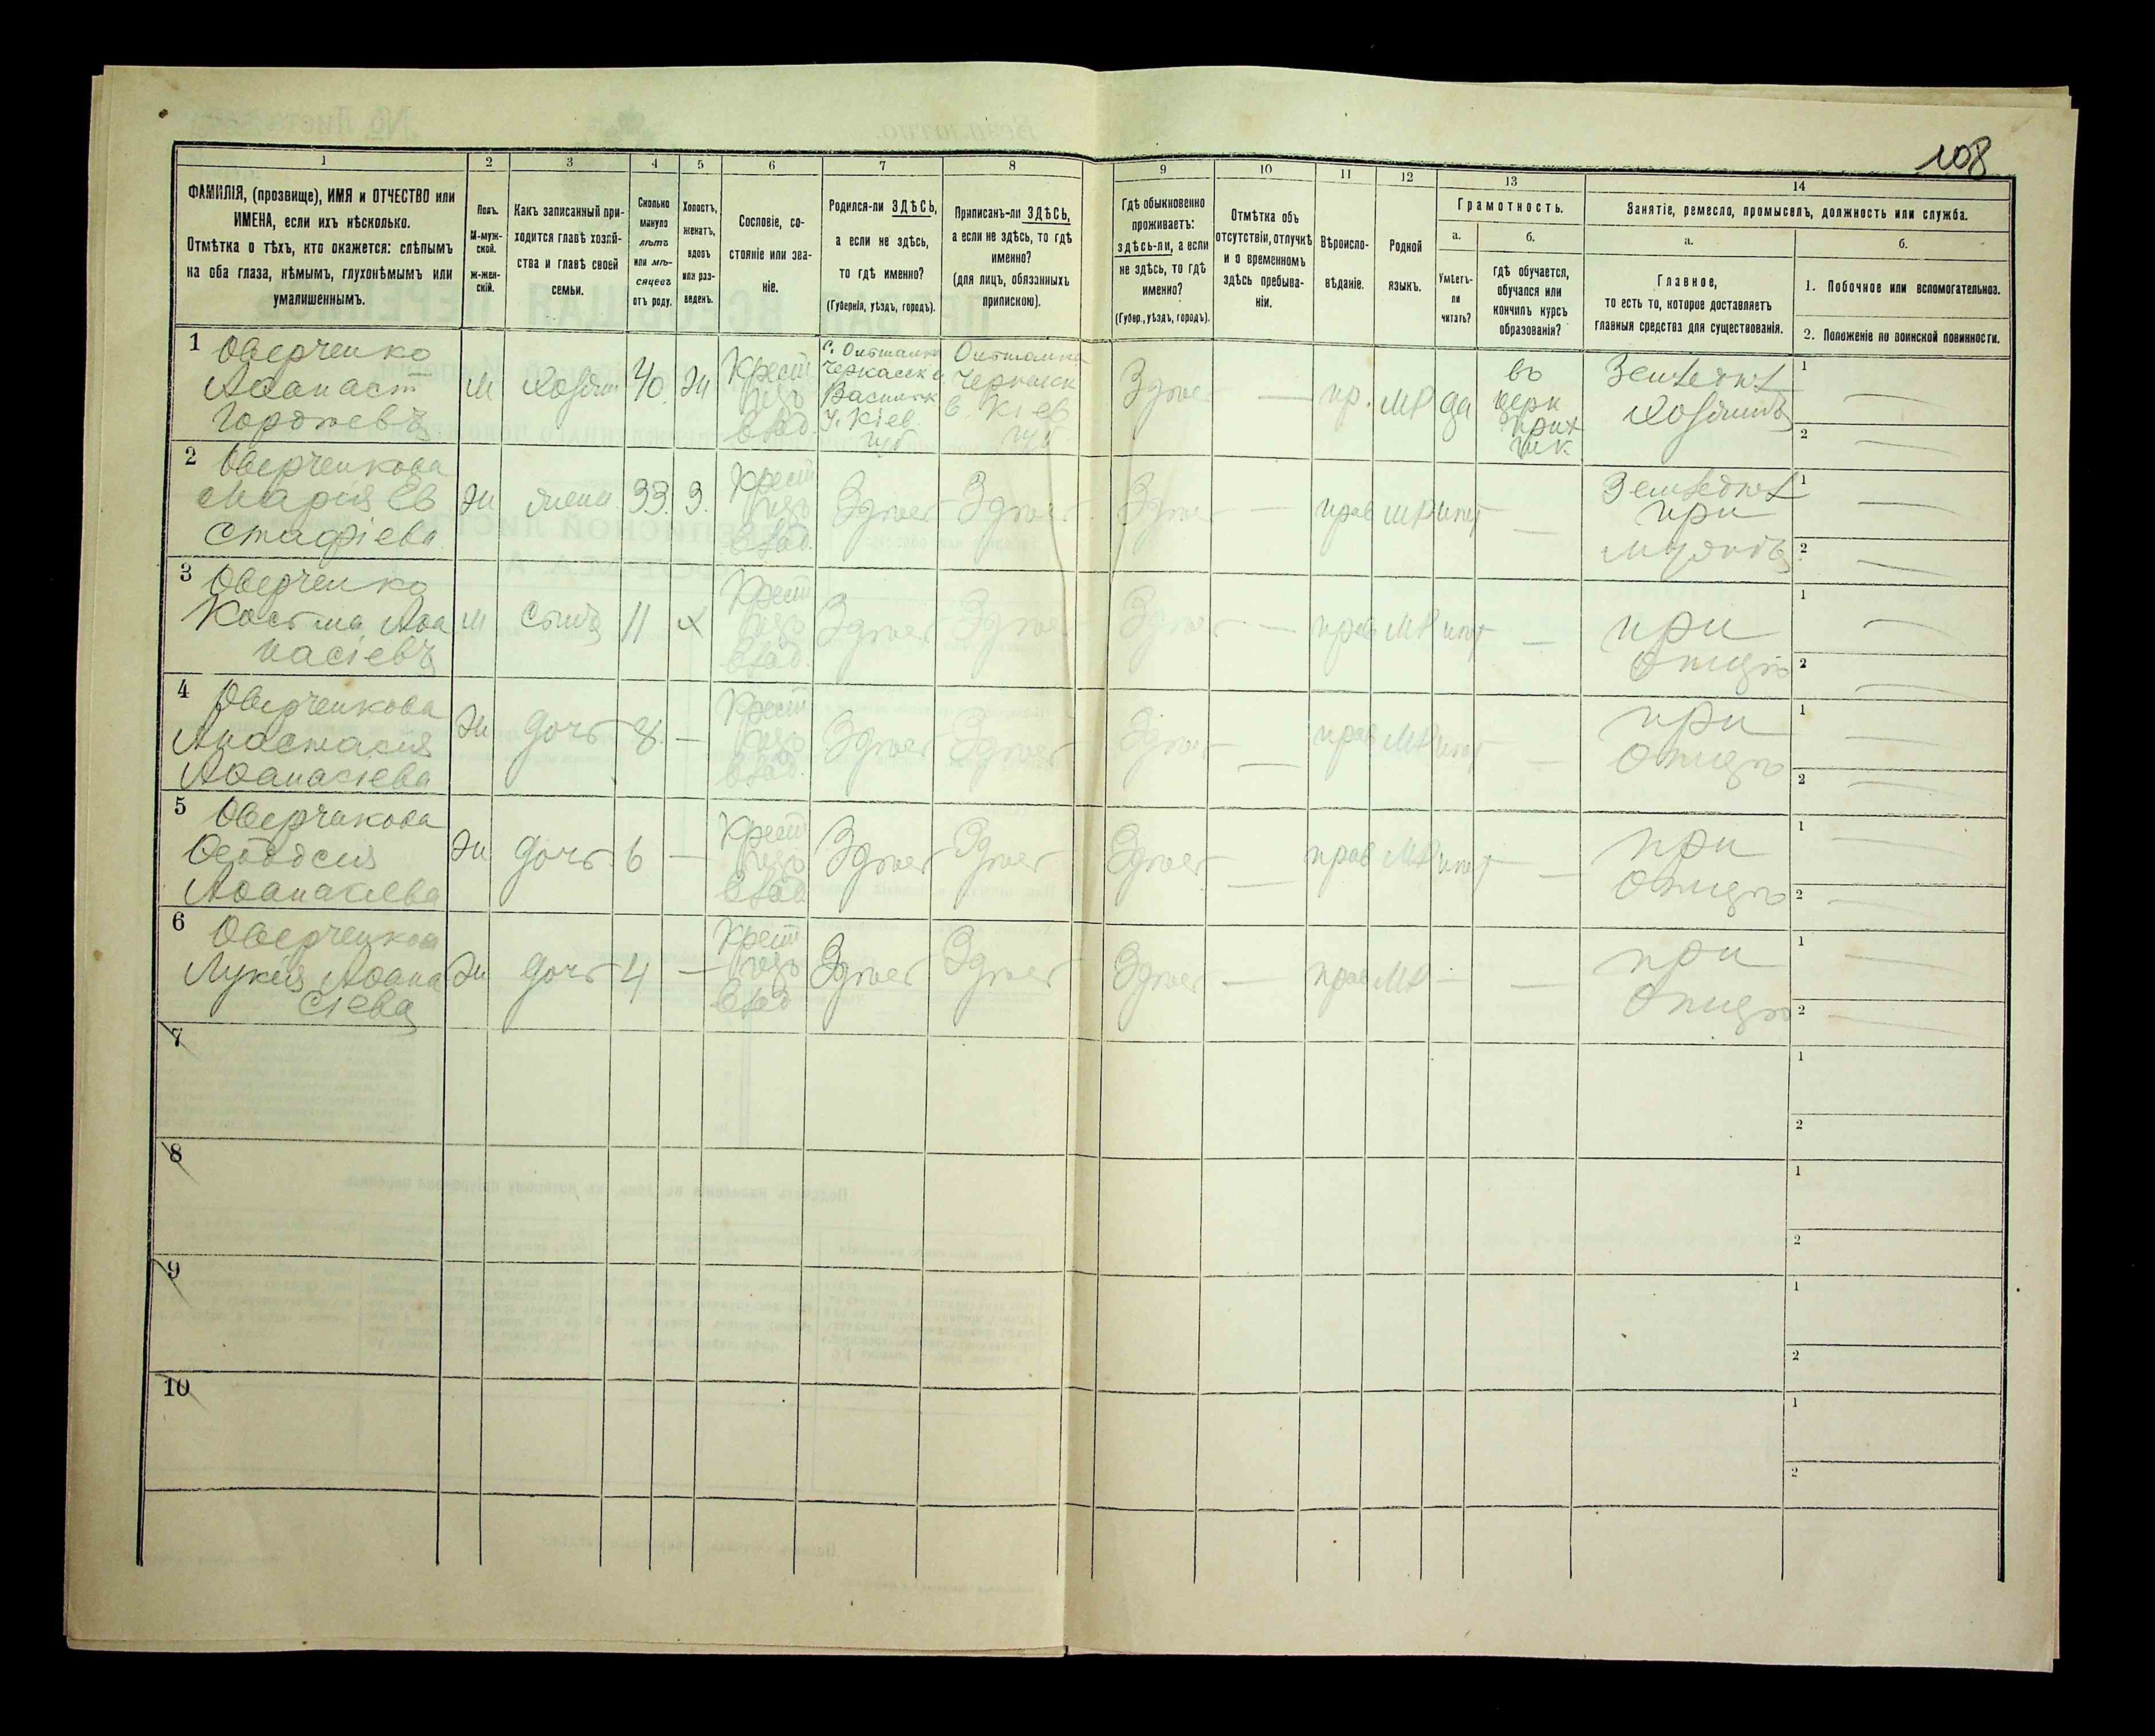 108
1
2
3
4
5
6
7
8
9
10
11
12
13
14
ФАМИЛІЯ, (прозвище), ИМЯ и ОТЧЕСТВО или
ИМЕНА, если ихъ нѣсколько.
Отмѣтка о тѣхъ, кто окажется: слѣпымъ
на оба глаза, нѣмымъ, глухонѣмымъ или
умалишеннымъ.
Полъ.
М-муж-
ской.
ж-жен-
скій.
Какъ записанный при-
ходится главѣ хозяй-
ства и главѣ своей
семьи.
Сколько
минуло
лѣтъ
или мѣ-
сяцевъ
отъ роду.
Холостъ,
женатъ,
вдовъ
или раз-
веденъ.
Сословіе, со-
стояніе или зва-
ніе.
Родился-ли ЗДѢСЬ,
а если не здѣсь,
то гдѣ именно?
(Губернія, уѣздъ, городъ).
Приписанъ-ли ЗДѢСЬ,
а если не здѣсь, то гдѣ
именно?
(для лицъ, обязанныхъ
припискою).
Гдѣ обыкновенно
проживаетъ:
здѣсь-ли, а если
не здѣсь, то гдѣ
именно?
(Губер., уѣздъ, городъ).
Отмѣтка объ
отсутствіи, отлучкѣ
и о временномъ
здѣсь пребыва-
ніи.
Вѣроиспо-
вѣданіе.
Родной
языкъ.
Грамотность.
а.
Умѣетъ-
ли
читать?
б.
гдѣ обучается,
обучался или
кончилъ курсъ
образованія?
Занятіе, ремесло, промыселъ, должность или служба.
а.
Главное,
то есть то, которое доставляетъ
главныя средства для существованія.
б.
1. Побочное или вспомогательное.
2. Положеніе по воинской повинности.
1 Оверченко
Аѳанас
Гордѣевъ
М
Хозяин
40
Крест
влад.
Черкасск
Кіев
губ
Кіев
губ
Здѣсь
пр.
МР
да
въ
церк
прих
шк.
Хозяинъ
1
2
2 Оверченкова
Марія Ев
стафіева
жена
33
З.
Крест
влад.
Здѣсь
Здѣсь
Здѣсь
прав
МР
нѣт
при
мужѣ
1
2
3 Оверченко
Косьма Аѳа
насіевъ
М
сынъ
11
х
Крест
влад.
Здѣсь
Здѣсь
Здѣсь
прав
МР
нѣт
при
отцѣ
1
2
4 Оверченкова
Анастасия
Аѳанасіева
дочь
8
Крест
влад.
Здѣсь
Здѣсь
Здѣсь
прав
МР
нѣт
при
отцѣ
1
2
5 Оверчакова
Ѳеодосия
Аѳанасіева
дочь
6
Крест
влад
Здѣсь
Здѣсь
Здѣсь
прав
МР
нѣт
при
отцѣ
1
2
6 Оверченкова
Лукия Аѳана
сіева
дочь
4
Крест
влад
Здѣсь
Здѣсь
Здѣсь
прав
МР
при
отцѣ
1
2
7
1
2
8
1
2
9
1
2
10
1
2